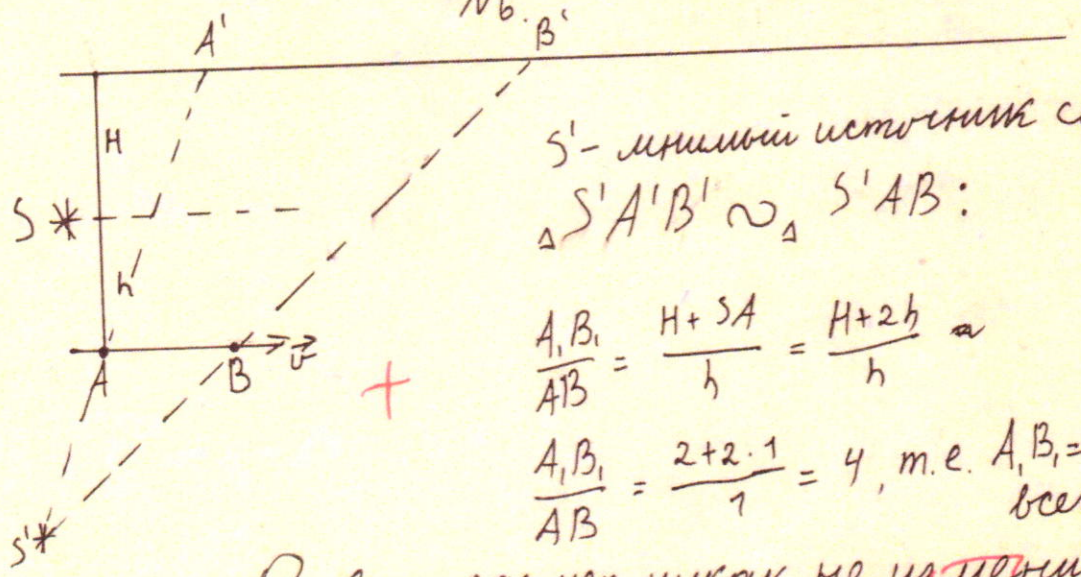 №6.
A' B'
H
S' - мнимый источник с
S
△S'A'B' ∾ △S'AB:
h
A₁B₁/AB = H+SA/h = H+2h/h
A B v⃗
A₁B₁/AB = 2+2·1/1 = 4, т.е. A₁B₁=
все
S'
никак не